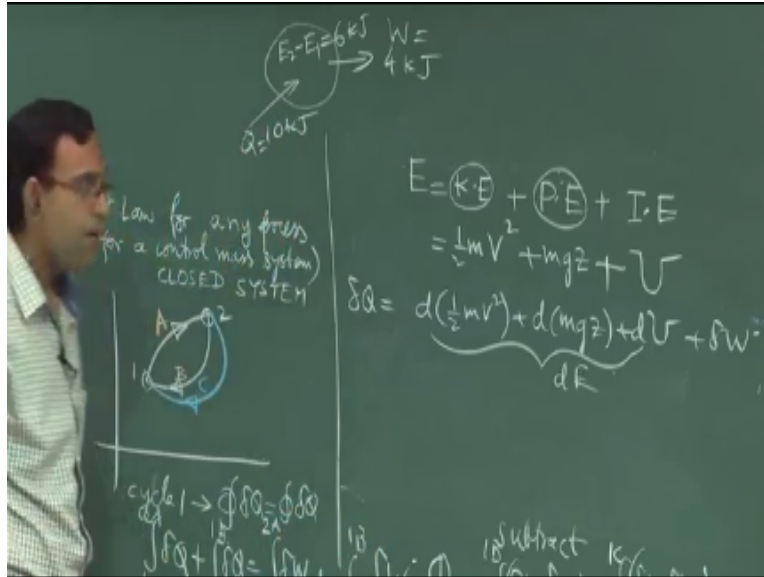 E₂-E₁=6kJ
W=
4kJ
Q=10kJ
Law for any process
(for a control mass system)
CLOSED SYSTEM
A
2
1
B
C
cycle 1 → ∮δQ = ∮δQ
2A 1B 2A
∫δQ + ∫δQ = ∫δW +
E = K.E + P.E + I.E
= ½mV² + mgz + U
δQ = d(½mV²) + d(mgz) + dU + δW
dE
1B
Subtract